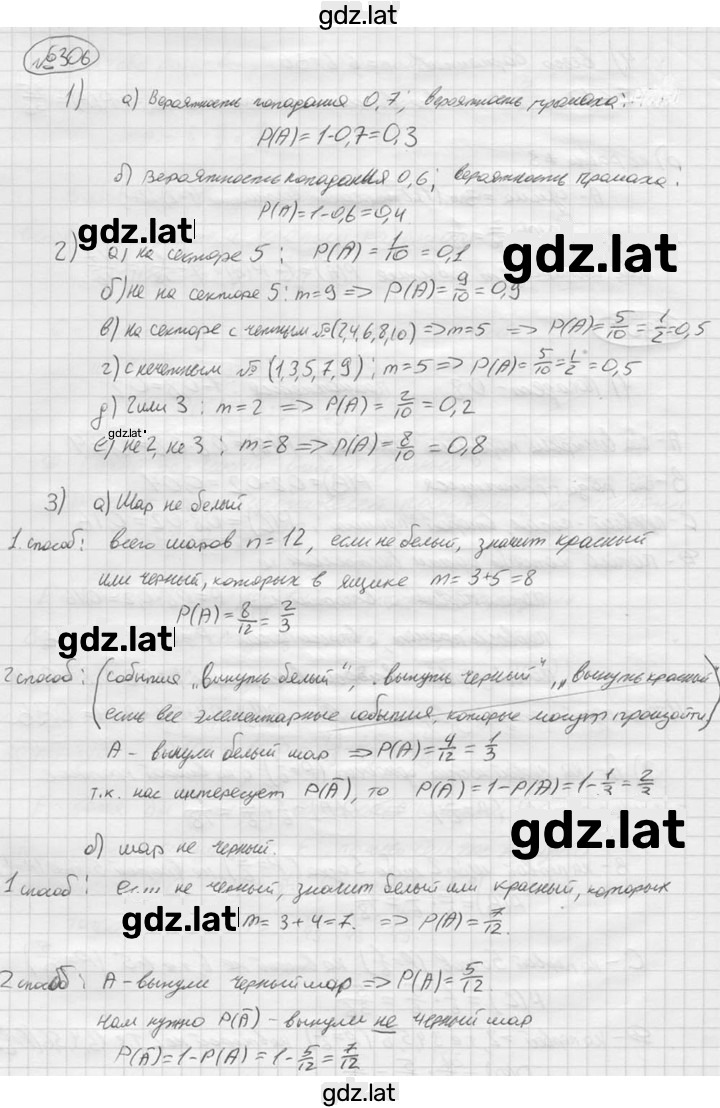 gdz.lat
№306
1) а) Вероятность попадания 0,7; вероятность промаха:
P(A) = 1-0,7=0,3
б) Вероятность попадания 0,6; вероятность промаха:
P(A)=1-0,6=0,4
gdz.lat
2) а) на секторе 5; P(A) = 1/10 = 0,1
gdz.lat
б) не на секторе 5: m=9 => P(A)= 9/10 = 0,9
в) на секторе с четным № (2,4,6,8,10) => m=5 => P(A)= 5/10 = 1/2 =0,5
г) с нечетным № (1,3,5,7,9); m=5 => P(A)= 5/10 = 1/2 = 0,5
д) 2 или 3; m=2 => P(A) = 2/10 = 0,2
gdz.lat
е) не 2, не 3; m=8 => P(A)= 8/10 = 0,8
3) а) Шар не белый
1 способ: всего шаров n=12, если не белый, значит красный
или черный, которых в ящике m=3+5=8
P(A)= 8/12 = 2/3
gdz.lat
2 способ: (События „вынуть белый", „вынуть черный", „вынуть красный"
есть все элементарные события, которые могут произойти)
A - вынули белый шар => P(A)= 4/12 = 1/3
т.к. нас интересует P(Ā), то P(Ā)=1-P(A)=1- 1/3 = 2/3
gdz.lat
б) шар не черный.
1 способ: не черный, значит белый или красный, которых
gdz.lat
m= 3+4=7. => P(A)= 7/12.
2 способ: A - вынули черный шар => P(A)= 5/12.
Нам нужно P(Ā) - вынули не черный шар
P(Ā)=1-P(A)=1- 5/12 = 7/12
gdz.lat